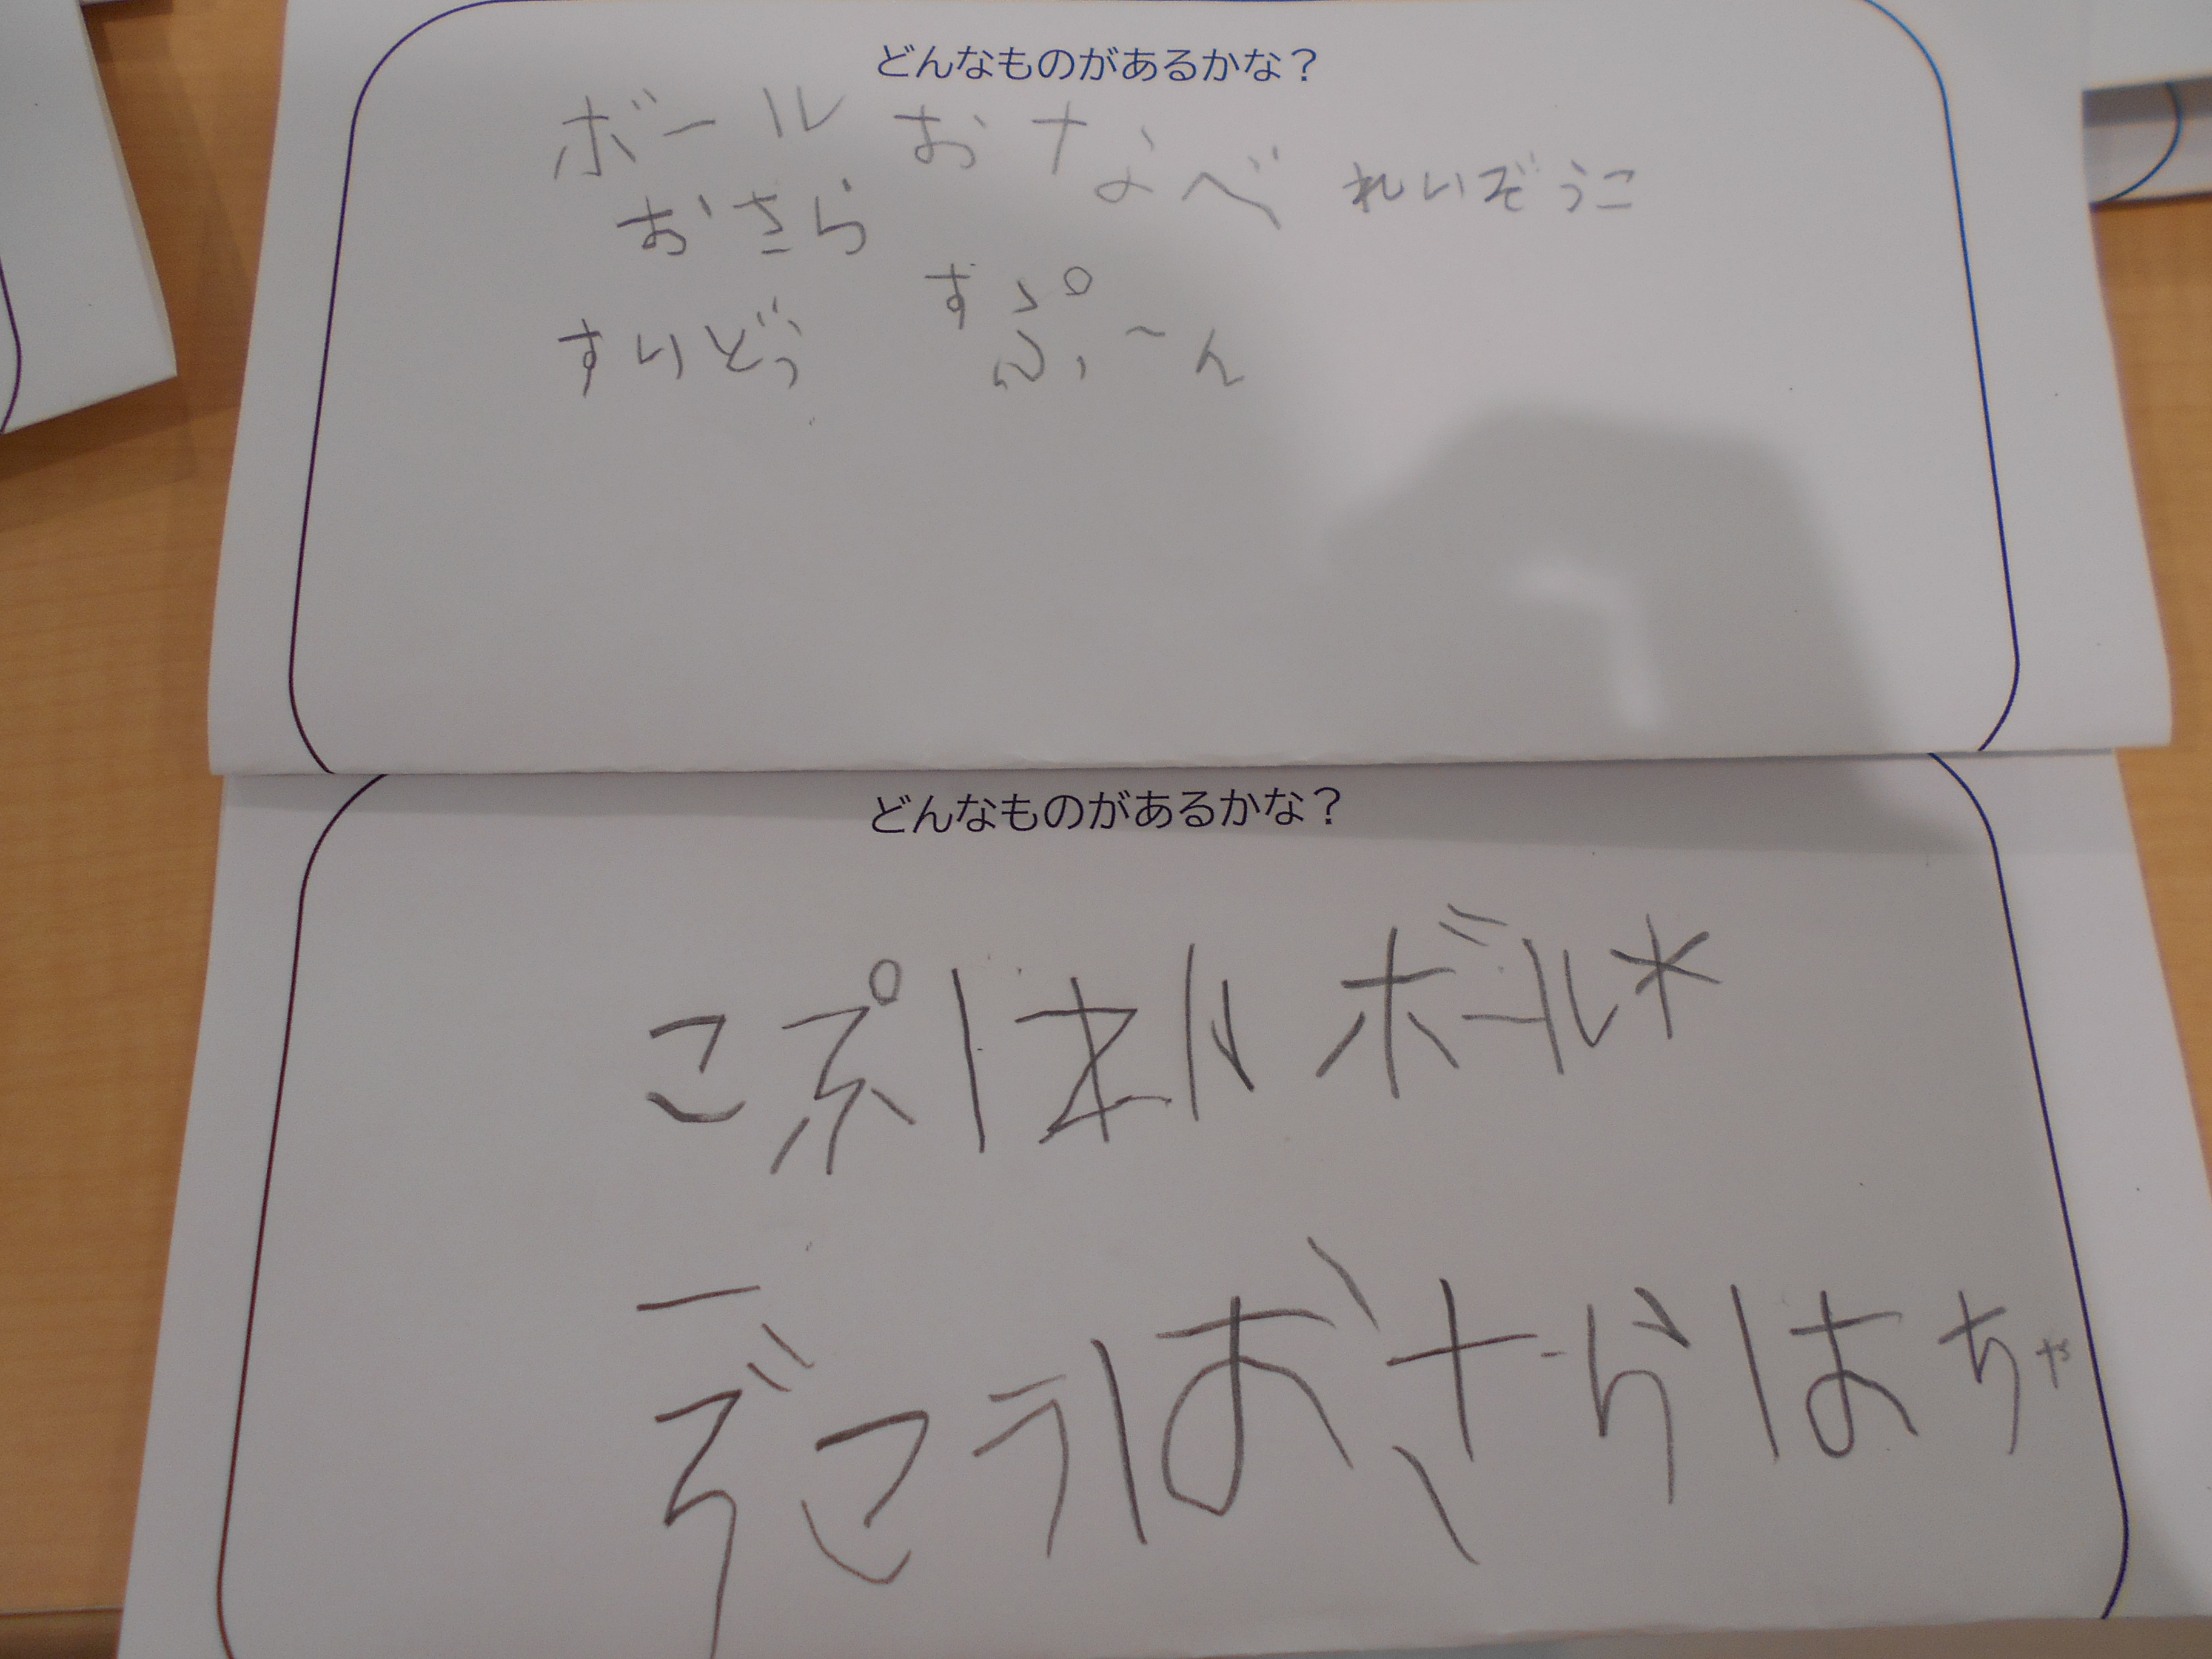 どんなものがあるかな？
ボール おなべ れいぞうこ
おさら
すぷーん
すいどう
どんなものがあるかな？
こぷ ボール
ぞこ おさら おちゃ